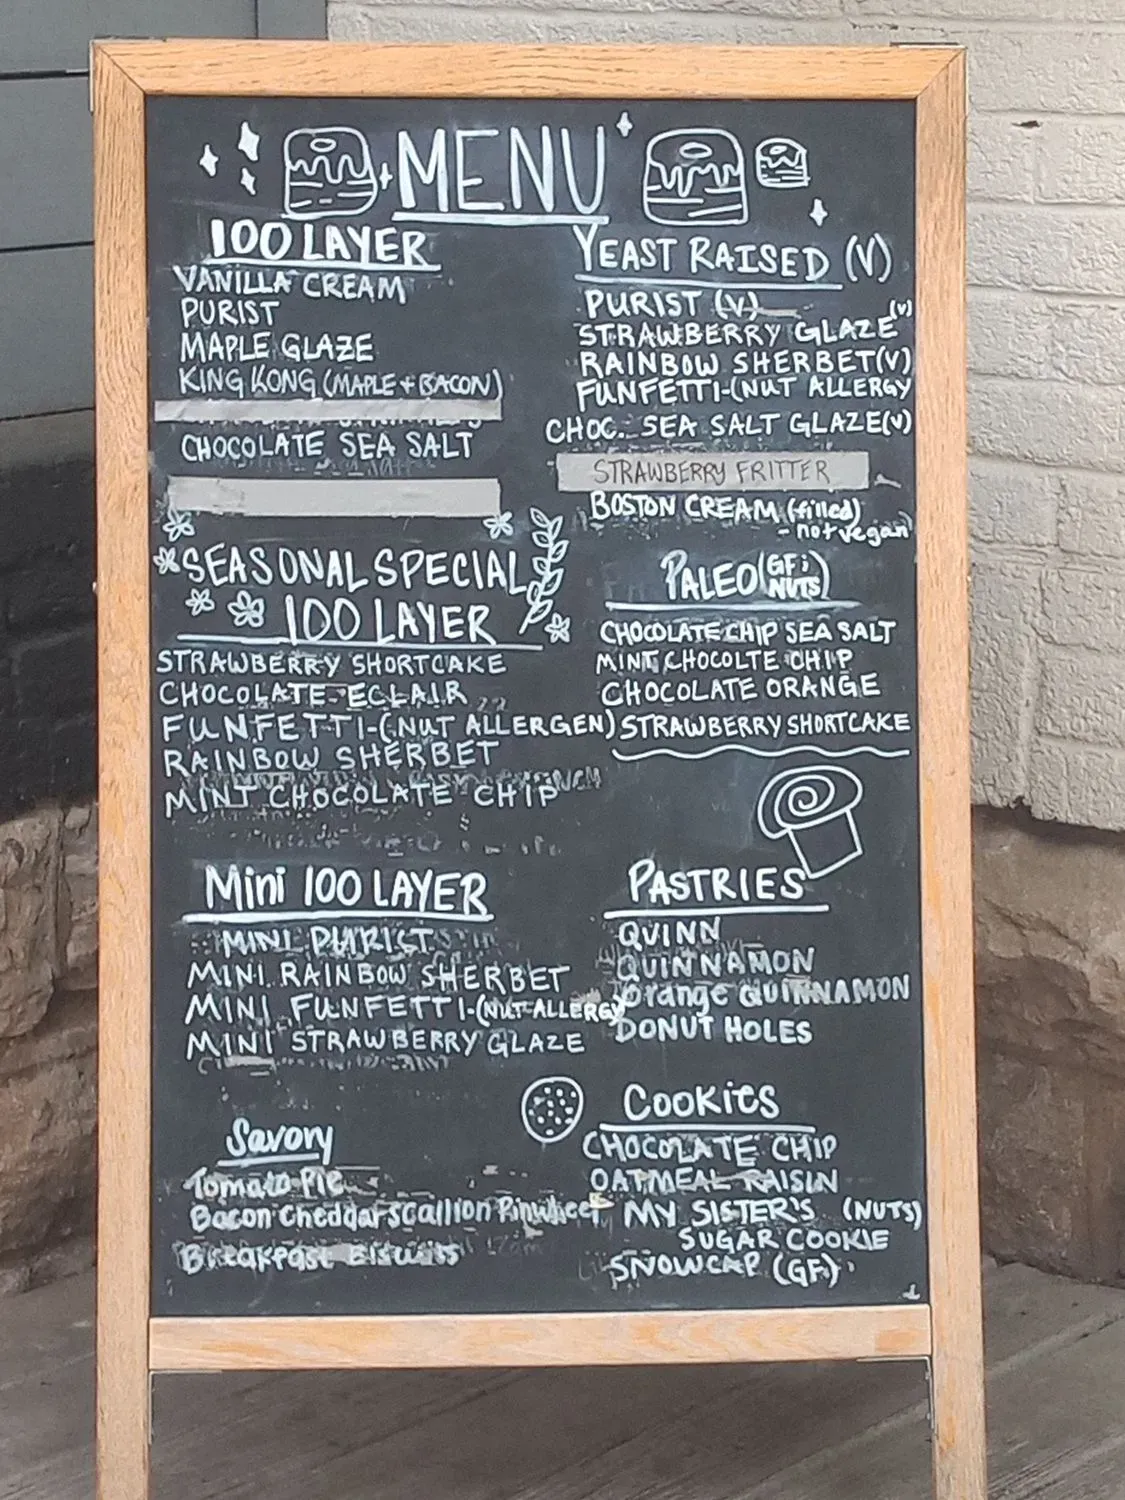 MENU
100 LAYER
VANILLA CREAM
PURIST
MAPLE GLAZE
KING KONG (MAPLE + BACON)
CHOCOLATE SEA SALT
SEASONAL SPECIAL
100 LAYER
STRAWBERRY SHORTCAKE
CHOCOLATE ECLAIR
FUNFETTI-(NUT ALLERGEN)
RAINBOW SHERBET
MINT CHOCOLATE CHIP
Mini 100 LAYER
MINI PURIST
MINI RAINBOW SHERBET
MINI FUNFETTI-(NUT ALLERGY
MINI STRAWBERRY GLAZE
Savory
Tomato Pie
Bacon Cheddar Scallion Pinwheel
Breakfast Biscuits
YEAST RAISED (V)
PURIST (V)
STRAWBERRY GLAZE (V)
RAINBOW SHERBET(V)
FUNFETTI-(NUT ALLERGY
CHOC. SEA SALT GLAZE(V)
STRAWBERRY FRITTER
BOSTON CREAM (filled)
- not vegan
PALEO (GF; NUTS)
CHOCOLATE CHIP SEA SALT
MINT CHOCOLTE CHIP
CHOCOLATE ORANGE
STRAWBERRY SHORTCAKE
PASTRIES
QUINN
QUINNAMON
Orange QUINNAMON
DONUT HOLES
COOKIES
CHOCOLATE CHIP
OATMEAL RAISIN
MY SISTER'S (NUTS)
SUGAR COOKIE
SNOWCAP (GF)